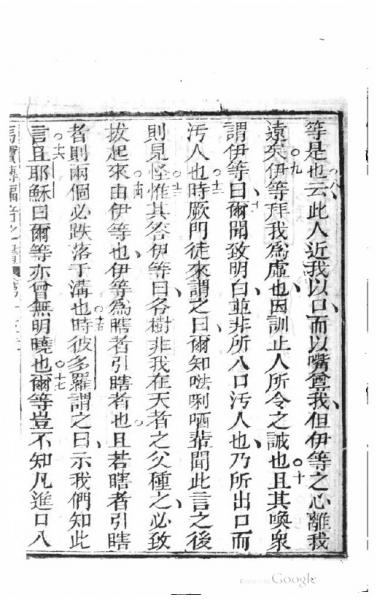 等是也云此人近我以口而以嘴尊我但伊等之心離我
遠矣伊等拜我爲虛也因訓止人所令之誡也且其喚衆
謂伊等曰爾聞致明白並非所入口汚人也乃所出口而
汚人也時厥門徒來謂之曰爾知𠵽唎哂輩聞此言之後
則見怪惟其答伊等曰各樹非我在天者之父種之必致
拔起來由伊等也伊等爲瞎者引瞎者也且若瞎者引瞎
者則兩個必跌落于溝也時彼多羅謂之曰示我們知此
言且耶穌曰爾等亦曾無明曉也爾等豈不知凡進口入
Google